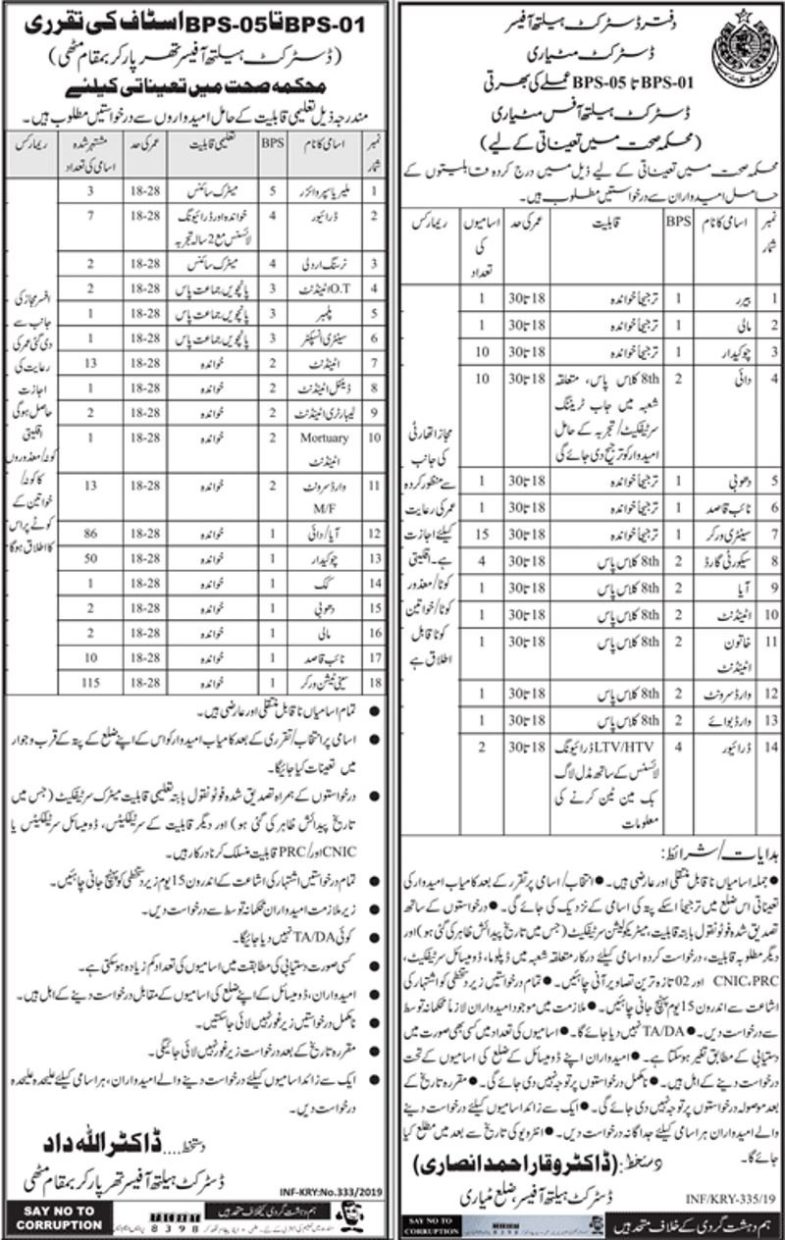 دفتر ڈسٹرکٹ ہیلتھ آفیسر
ڈسٹرکٹ مٹیاری
BPS-01 تا BPS-05 عملے کی بھرتی
ڈسٹرکٹ ہیلتھ آفس مٹیاری
(محکمہ صحت میں تعیناتی کے لیے)
محکمہ صحت میں تعیناتی کے لیے ذیل میں درج کردہ قابلیتوں کے
حامل امیدواران سے درخواستیں مطلوب ہیں۔
نمبر شمار اسامی کا نام BPS قابلیت عمر کی حد اسامیوں کی تعداد ریمارکس
1 بیرر 1 ترجیحاً خواندہ 18 تا 30 1
2 مالی 1 ترجیحاً خواندہ 18 تا 30 1
3 چوکیدار 1 ترجیحاً خواندہ 18 تا 30 10
4 دائی 2 8th کلاس پاس، متعلقہ 18 تا 30 10
شعبہ میں جاب ٹریننگ
سرٹیفکیٹ/تجربہ کے حامل
امیدوار کو ترجیح دی جائے گی
5 دھوبی 1 ترجیحاً خواندہ 18 تا 30 1
6 نائب قاصد 1 ترجیحاً خواندہ 18 تا 30 1
7 سینٹری ورکر 1 ترجیحاً خواندہ 18 تا 30 15
8 سیکورٹی گارڈ 2 8th کلاس پاس 18 تا 30 4
9 آیا 2 8th کلاس پاس 18 تا 30 1
10 اٹینڈنٹ 2 8th کلاس پاس 18 تا 30 1
11 خاتون اٹینڈنٹ 2 8th کلاس پاس 18 تا 30 1
12 وارڈ سرونٹ 2 8th کلاس پاس 18 تا 30 1
13 وارڈ بوائے 2 8th کلاس پاس 18 تا 30 1
14 ڈرائیور 4 LTV/HTV ڈرائیونگ 18 تا 30 2
لائسنس کے ساتھ مڈل لاگ
بک مین ٹین کرنے کی
معلومات
مجاز اتھارٹی
کی جانب
سے منظور کردہ
عمر کی رعایت
کیلئے اجازت
ہے۔ اقلیتی
کوٹا/معذور
کوٹا/خواتین
کوٹا قابل
اطلاق ہے
ہدایات/شرائط:
● جملہ اسامیاں ناقابل منتقلی اور عارضی ہیں۔ ● انتخاب/اسامی پر تقرر کے بعد کامیاب امیدوار کی
تعیناتی اس ضلع میں ترجیحاً اسکے پتہ کی اسامی کے نزدیک کی جائے گی۔ ● درخواستوں کے ساتھ
تصدیق شدہ فوٹو نقول بابتہ قابلیت، میٹریکولیشن سرٹیفکیٹ (جس میں تاریخ پیدائش ظاہر کی گئی ہو) اور
دیگر مطلوبہ قابلیت، درخواست کردہ اسامی کیلئے درکار متعلقہ شعبہ میں ڈپلوما، ڈومیسائل سرٹیفکیٹ،
CNIC،PRC اور 02 تازہ ترین تصاویر آنی چاہئیں۔ ● تمام درخواستیں زیر دستخطی کو اشتہار کی
اشاعت سے اندرون 15 یوم پہنچ جانی چاہئیں۔ ● ملازمت میں موجود امیدواران لازماً محکمانہ توسط
سے درخواست دیں۔ ● TA/DA نہیں دیا جائے گا۔ ● اسامیوں کی تعداد میں کسی بھی صورت میں
دستیابی کے مطابق تغیر ہو سکتا ہے۔ ● امیدواران اپنے ڈومیسائل کے ضلع کی اسامیوں کے تحت
درخواست دینے کے اہل ہیں۔ ● نامکمل درخواستوں پر توجہ نہیں دی جائے گی۔ ● مقررہ تاریخ کے
بعد موصولہ درخواستوں پر توجہ نہیں دی جائے گی۔ ● ایک سے زائد اسامیوں کیلئے درخواست دینے
والے امیدواران ہر اسامی کیلئے جداگانہ درخواست دیں۔ ● انٹرویو کی تاریخ سے بعد میں مطلع کیا
جائے گا۔
دستخط: (ڈاکٹر وقار احمد انصاری)
ڈسٹرکٹ ہیلتھ آفیسر، ضلع مٹیاری
INF/KRY-335/19
ہم دہشت گردی کے خلاف متحد ہیں
SAY NO TO
CORRUPTION
BPS-01 تا BPS-05 اسٹاف کی تقرری
(ڈسٹرکٹ ہیلتھ آفیسر تھرپارکر بمقام مٹھی)
محکمہ صحت میں تعیناتی کیلئے
مندرجہ ذیل تعلیمی قابلیت کے حامل امیدواروں سے درخواستیں مطلوب ہیں۔
نمبر شمار اسامی کا نام BPS تعلیمی قابلیت عمر کی حد مشتہر شدہ اسامی کی تعداد ریمارکس
1 ملیریا سپروائزر 5 میٹرک سائنس 18-28 3
2 ڈرائیور 4 خواندہ اور ڈرائیونگ 18-28 7
لائسنس مع 2 سالہ تجربہ
3 نرسنگ اردلی 4 میٹرک سائنس 18-28 2
4 O.T اٹینڈنٹ 3 پانچویں جماعت پاس 18-28 2
5 پلمبر 3 پانچویں جماعت پاس 18-28 1
6 سینٹری انسپکٹر 3 پانچویں جماعت پاس 18-28 1
7 اٹینڈنٹ 2 خواندہ 18-28 13
8 ڈینٹل اٹینڈنٹ 2 خواندہ 18-28 1
9 لیبارٹری اٹینڈنٹ 2 خواندہ 18-28 2
10 Mortuary اٹینڈنٹ 2 خواندہ 18-28 1
11 وارڈ سرونٹ M/F 2 خواندہ 18-28 13
12 آیا/دائی 1 خواندہ 18-28 86
13 چوکیدار 1 خواندہ 18-28 50
14 کک 1 خواندہ 18-28 1
15 دھوبی 1 خواندہ 18-28 2
16 مالی 1 خواندہ 18-28 2
17 نائب قاصد 1 خواندہ 18-28 10
18 سینی ٹیشن ورکر 1 خواندہ 18-28 115
افسر مجاز کی
جانب سے
دی گئی عمر کی
رعایت کی
اجازت
حاصل ہوگی
اقلیتی
کوٹہ/معذوروں
کا کوٹہ/
خواتین کے
کوٹے پر اس
کا اطلاق ہوگا
● تمام اسامیاں ناقابل منتقلی اور عارضی ہیں۔
● اسامی پر انتخاب/تقرری کے بعد کامیاب امیدوار کو اس کے اپنے ضلع کے پتہ کے قرب و جوار
میں تعینات کیا جائیگا۔
● درخواستوں کے ہمراہ تصدیق شدہ فوٹو نقول بابتہ تعلیمی قابلیت میٹرک سرٹیفکیٹ (جس میں
تاریخ پیدائش ظاہر کی گئی ہو) اور دیگر قابلیت کے سرٹیفکیٹس، ڈومیسائل سرٹیفکیٹس یا
CNIC اور/PRC قابلیت منسلک کرنا درکار ہیں۔
● تمام درخواستیں اشتہار کی اشاعت کے اندرون 15 یوم زیر دستخطی کو پہنچ جانی چاہئیں۔
● زیر ملازمت امیدواران محکمانہ توسط سے درخواست دیں۔
● کوئی TA/DA نہیں دیا جائیگا۔
● کسی صورت دستیابی کی مطابقت میں اسامیوں کی تعداد کم زیادہ ہو سکتی ہے۔
● امیدواران، ڈومیسائل کے اپنے ضلع کی اسامیوں کے مقابل درخواست دینے کے اہل ہیں۔
● نامکمل درخواستیں زیر غور نہیں لائی جا سکتیں۔
● مقررہ تاریخ کے بعد درخواست زیر غور نہیں لائی جائیگی۔
● ایک سے زائد اسامیوں کیلئے درخواست دینے والے امیدواران، ہر اسامی کیلئے علیحدہ علیحدہ
درخواست دیں۔
دستخط....ڈاکٹر اللہ داد
ڈسٹرکٹ ہیلتھ آفیسر تھرپارکر بمقام مٹھی
INF-KRY:No.333/2019
ہم دہشت گردی کیخلاف متحد ہیں
8398
SAY NO TO
CORRUPTION